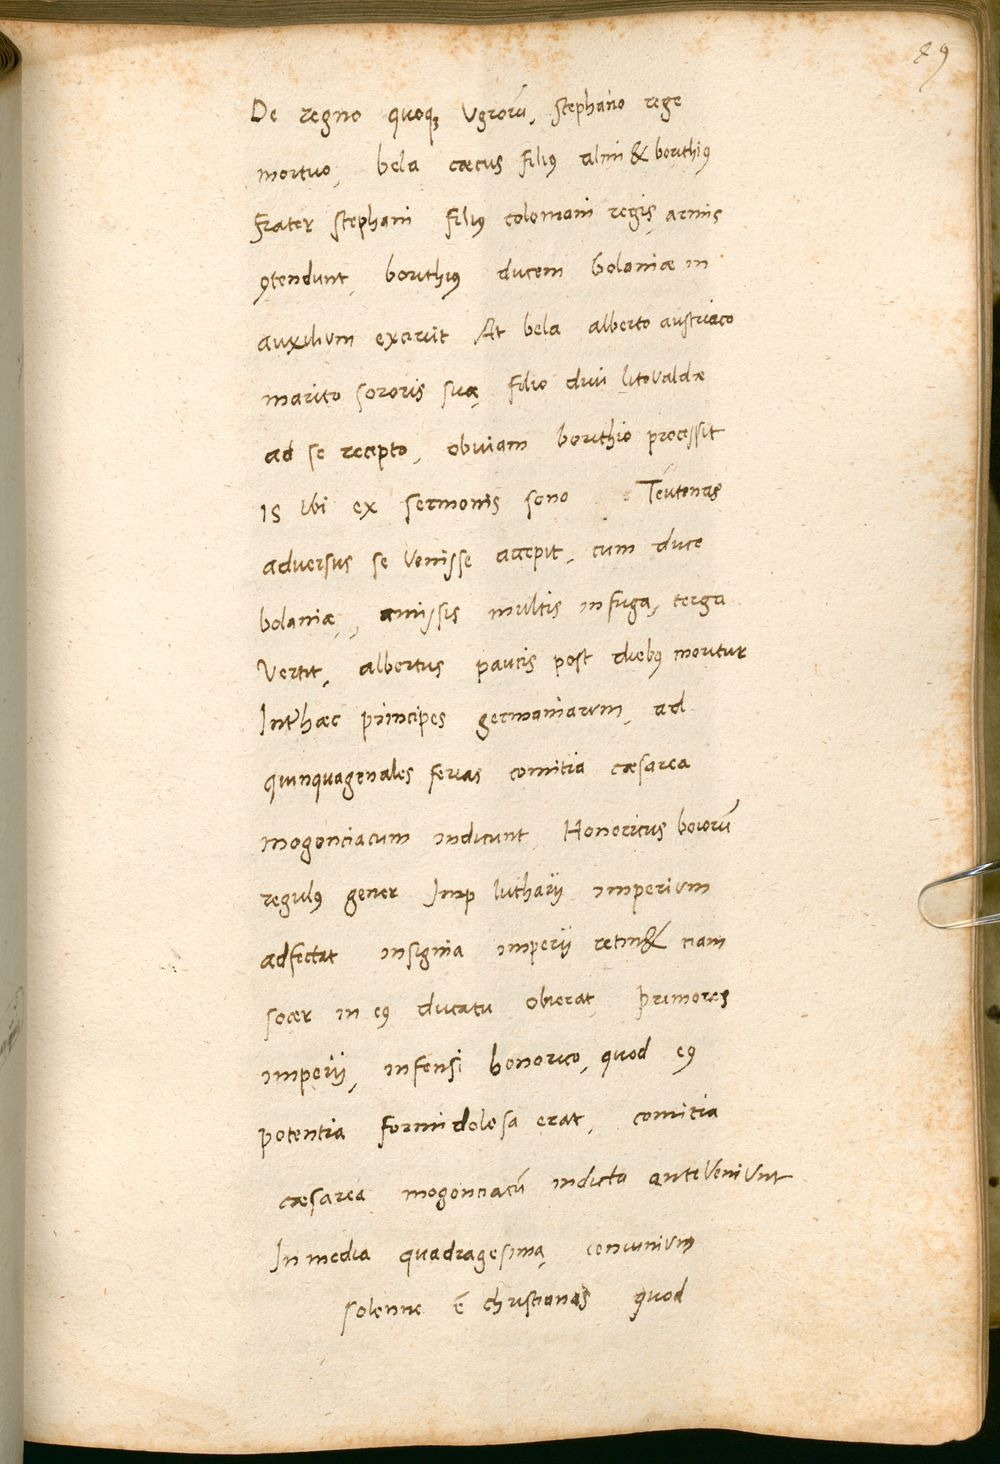 29
De regno quoq; Vgrorū, Stephano rege
mortuo, bela cæcus filiꝰ almi & boruthiꝰ
Frater Stephani filiꝰ colomani regis, armis
ꝯtendunt, boruthiꝰ ducem bolaniæ in
auxilium exciuit At bela alberto austriaco
marito sororis suæ, filio diui litovaldæ
ad se recepto, obuiam boruthio processit
IS Vbi ex sermonis sono Teutonas
aduersus se Venisse accepit, cum duce
bolaniæ, amissis multis in fuga, terga
Vertit, albertus paucis post diebꝰ moritur
Inter hæc principes germaniarum, ad
quinquagenales ferias comitia cæsarea
mogonciacum indicunt, Honoricus boiorū
regulꝰ gener Imp lutharij imperium
adfectat insignia imperij retin& nam
socer in eꝰ ducatu obierat, primores
imperij, infensi honorico, quod eꝰ
potentia formidolosa erat, comitia
cæsarea mogonciacū indicta anteVeniVnt
In media quadragesima, ieniunium
solenne ē christianis quod